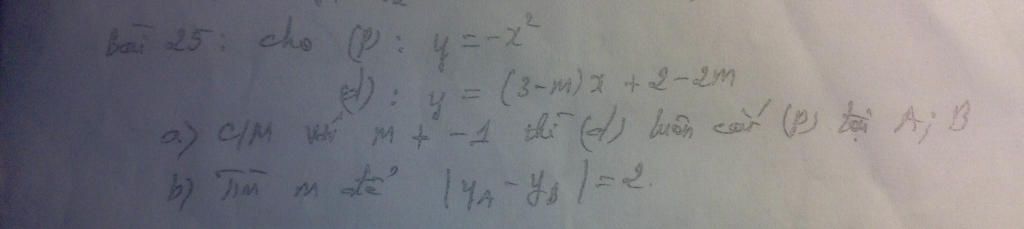 Bài 25: cho (P): y = -x²
(d): y = (3-m)x + 2-2m
a) C/M với m ≠ -1 thì (d) luôn cắt (P) tại A; B
b) Tìm m để |yA - yB| = 2.